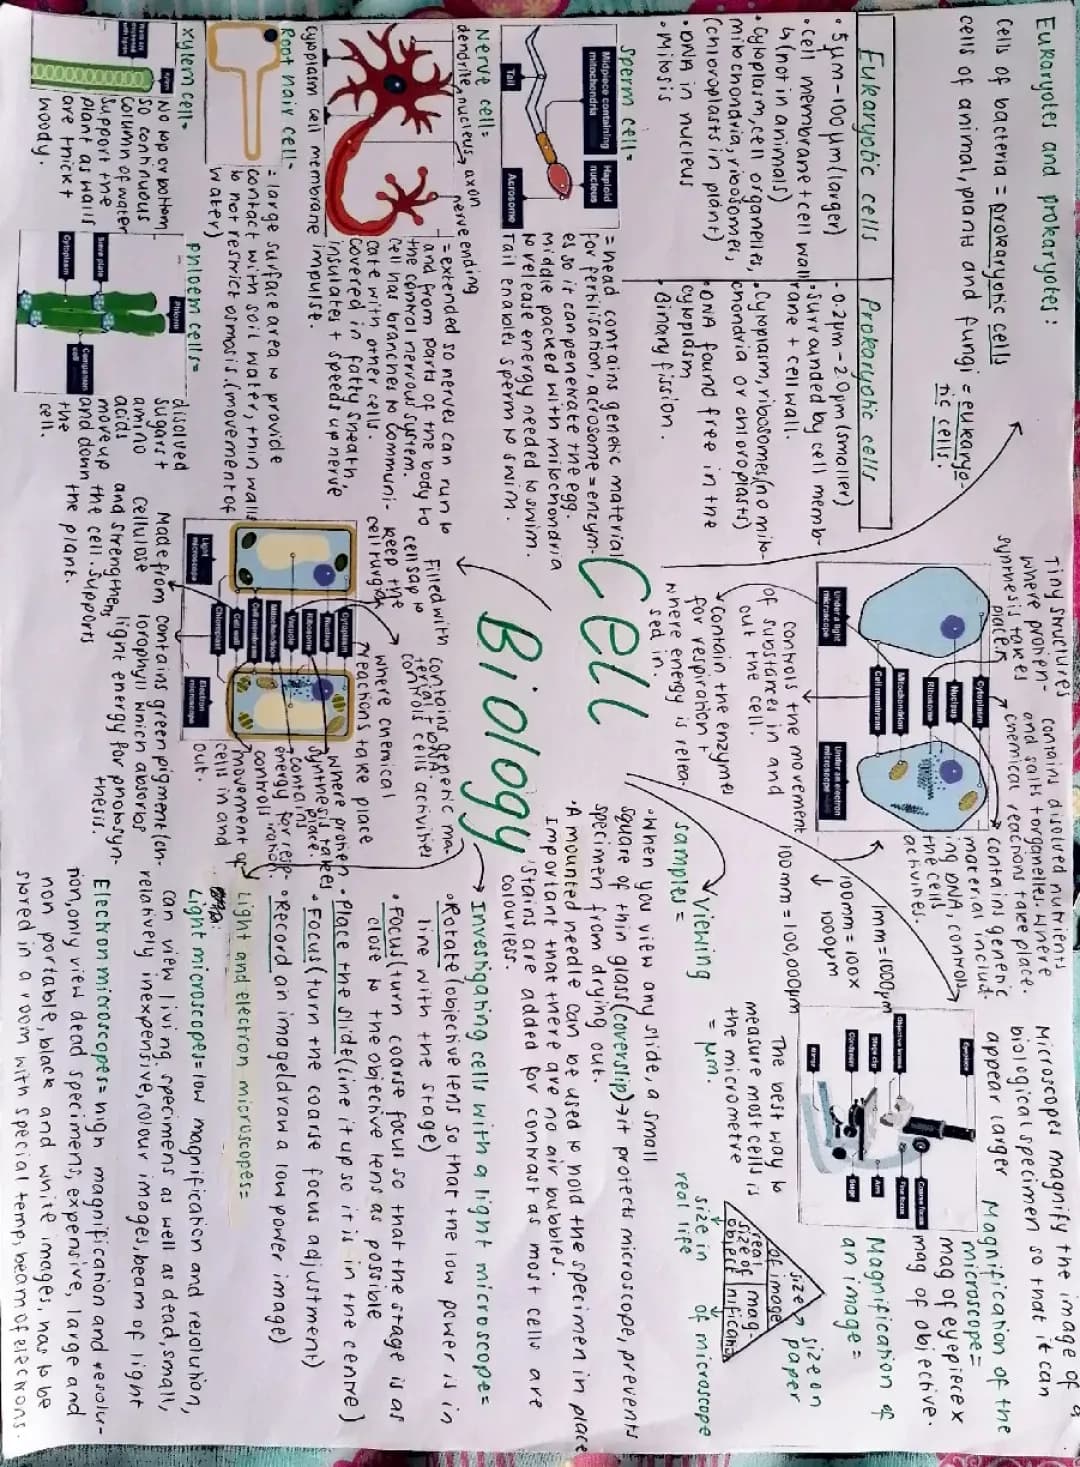 Eukaryotes and prokaryotes:
Cells of bacteria = prokaryotic cells
cells of animal, plants and fungi = eukaryo-
tic cells.
Eukaryotic cells
Prokaryotic cells
• 5μm - 100μm (larger)
• cell membrane + cell wall
↳ (not in animals)
• Cytoplasm, cell organelles,
mitochondria, ribosomes,
(chloroplasts in plant)
• DNA in nucleus
• Mitosis
• 0.2μm - 2.0μm (smaller)
• Surrounded by cell memb-
rane + cell wall.
• Cytoplasm, ribosomes (no mito-
chondria or chloroplasts)
• DNA found free in the
cytoplasm
• Binary fission.
Sperm cell =
Midpiece containing
mitochondria
Haploid
nucleus
Tail
Acrosome
= head contains genetic material
for fertilisation, acrosome = enzym-
es so it can penetrate the egg.
Middle packed with mitochondria
to release energy needed to swim.
Tail enables sperm to swim.
Nerve cell =
dendrite, nucleus, axon
nerve ending
cytoplasm cell membrane
= extended so nerves can run to
and from parts of the body to
the central nervous system.
Cell has branches to communi-
cate with other cells.
Covered in fatty sheath,
insulates + speeds up nerve
impulse.
Root hair cell =
= large surface area to provide
contact with soil water, thin walls
to not restrict osmosis. (movement of
water)
xylem cell =
Xylem
No top or bottom
so continuous
column of water
Support the
plant as walls
are thick +
woody.
phloem cells =
Phloem
Sieve plate
Cytoplasm
Companion
cell
dissolved
sugars +
amino
acids
move up
and down
the
cell.
the cell. Supports
the plant.
Cell
Biology
Tiny structures
where protein-
synthesis takes
place
contains disolved nutrients
and salts + organelles. Where
chemical reactions take place.
contains genetic
material includ-
ing DNA, controls
the cells
activities.
Under a light
microscope
Cytoplasm
Nucleus
Ribosome
Mitochondrion
Cell membrane
Under an electron
microscope
controls the movement
of substances in and
out the cell.
Contain the enzymes
for respiration +
where energy is relea-
sed in.
Filled with
cell sap to
keep the
cell turgid
contains genetic ma-
terial + DNA.
controls cells activities
where chemical
reactions take place
where protien
synthesis takes
place.
contains
energy for resp-
iration.
controls
movement of
cells in and
out.
Light
microscope
Cytoplasm
Nucleus
Ribosome
Vacuole
Mitochondrion
Cell membrane
Cell wall
Chloroplast
Electron
microscope
Made from
cellulose
and strengthens
contains green pigment (ch-
lorophyll which absorbs
light energy for photosyn-
thesis.
1mm = 1000μm
100mm = 100x
1000μm
100mm = 100,000μm
Microscopes magnify the image of a
biological specimen so that it can
appear larger
Eyepiece
Objective lenses
Stage clip
Condenser
Coarse focus
Fine focus
Arm
Stage
Magnification of the
microscope =
mag of eyepiece x
mag of objective.
Magnification of
an image =
size
of image
real
size of
object
mag-
nification
size on
paper
size in
real life
of microscope
The best way to
measure most cells is
the micrometre
= μm.
Viewing
samples =
• When you view any slide, a small
square of thin glass (coverslip) → it protects microscope, prevents
specimen from drying out.
• A mounted needle can be used to hold the specimen in place
Important that there are no air bubbles.
• Stains are added for contrast as most cells are
colourless.
Investigating cells with a light microscope =
• Rotate (objective lens so that the low power is in
line with the stage)
• Focus (turn coarse focus so that the stage is as
close to the objective lens as possible
• Place the slide (line it up so it is in the centre)
• Focus (turn the coarse focus adjustment)
• Record an image (draw a low power image)
Light and electron microscopes =
Light microscopes = low magnification and resolution,
can view living specimens as well as dead, small,
relatively inexpensive, colour images, beam of light
Electron microscopes = high magnification and resolut-
ion, only view dead specimens, expensive, large and
non portable, black and white images, has to be
stored in a room with special temp, beam of electrons.